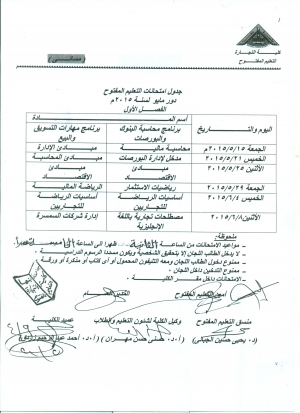 كلية التجارة
التعليم المفتوح
(مسائى)
جدول امتحانات التعليم المفتوح
دور مايو لسنة ٢٠١٥م
الفصل الأول
اليوم والتاريخ
اسم المادة
برنامج محاسبة البنوك والبورصات
برنامج مهارات التسويق والبيع
الجمعة ٢٠١٥/٥/١٥م
محاسبة مالية
مبادئ الإدارة
الخميس ٢٠١٥/٥/٢١م
مدخل لإدارة البورصات
مبادئ المحاسبة
الأثنين ٢٠١٥/٥/٢٥م
مبادئ الاقتصاد
مبادئ الاقتصاد
الجمعة ٢٠١٥/٥/٢٩م
رياضيات الاستثمار
الرياضة المالية
الخميس ٢٠١٥/٦/٤م
أساسيات الرياضة للتجاريين
أساسيات الرياضة للتجاريين
الأثنين ٢٠١٥/٦/٨م
مصطلحات تجارية باللغة الإنجليزية
إدارة شركات السمسرة
ملحوظة:
- مواعيد الامتحانات من الساعة الثانية ظهرا الى الساعة
- لا يدخل الطالب اللجان إلا بتحقيق الشخصية ويكون مسددا الرسوم الدراسية.
- ممنوع دخول الطالب اللجان ومعه التليفون المحمول أو أى كتاب أو مذكرة أو ورقة
- ممنوع التدخين داخل اللجان.
- الامتحانات داخل مقر الكلية
أمين التعليم المفتوح
منسق التعليم المفتوح
وكيل الكلية لشئون التعليم والطلاب
عميد الكلية
(د. يحيى حسين الجبالى)